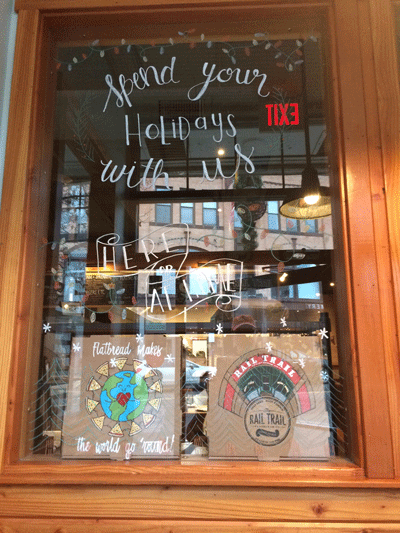 Spend your
HOLIDAYS
with us
EXIT
HERE
OR
AT HOME
flatbread Makes
the world go 'round!
RAIL TRAIL
RAIL TRAIL